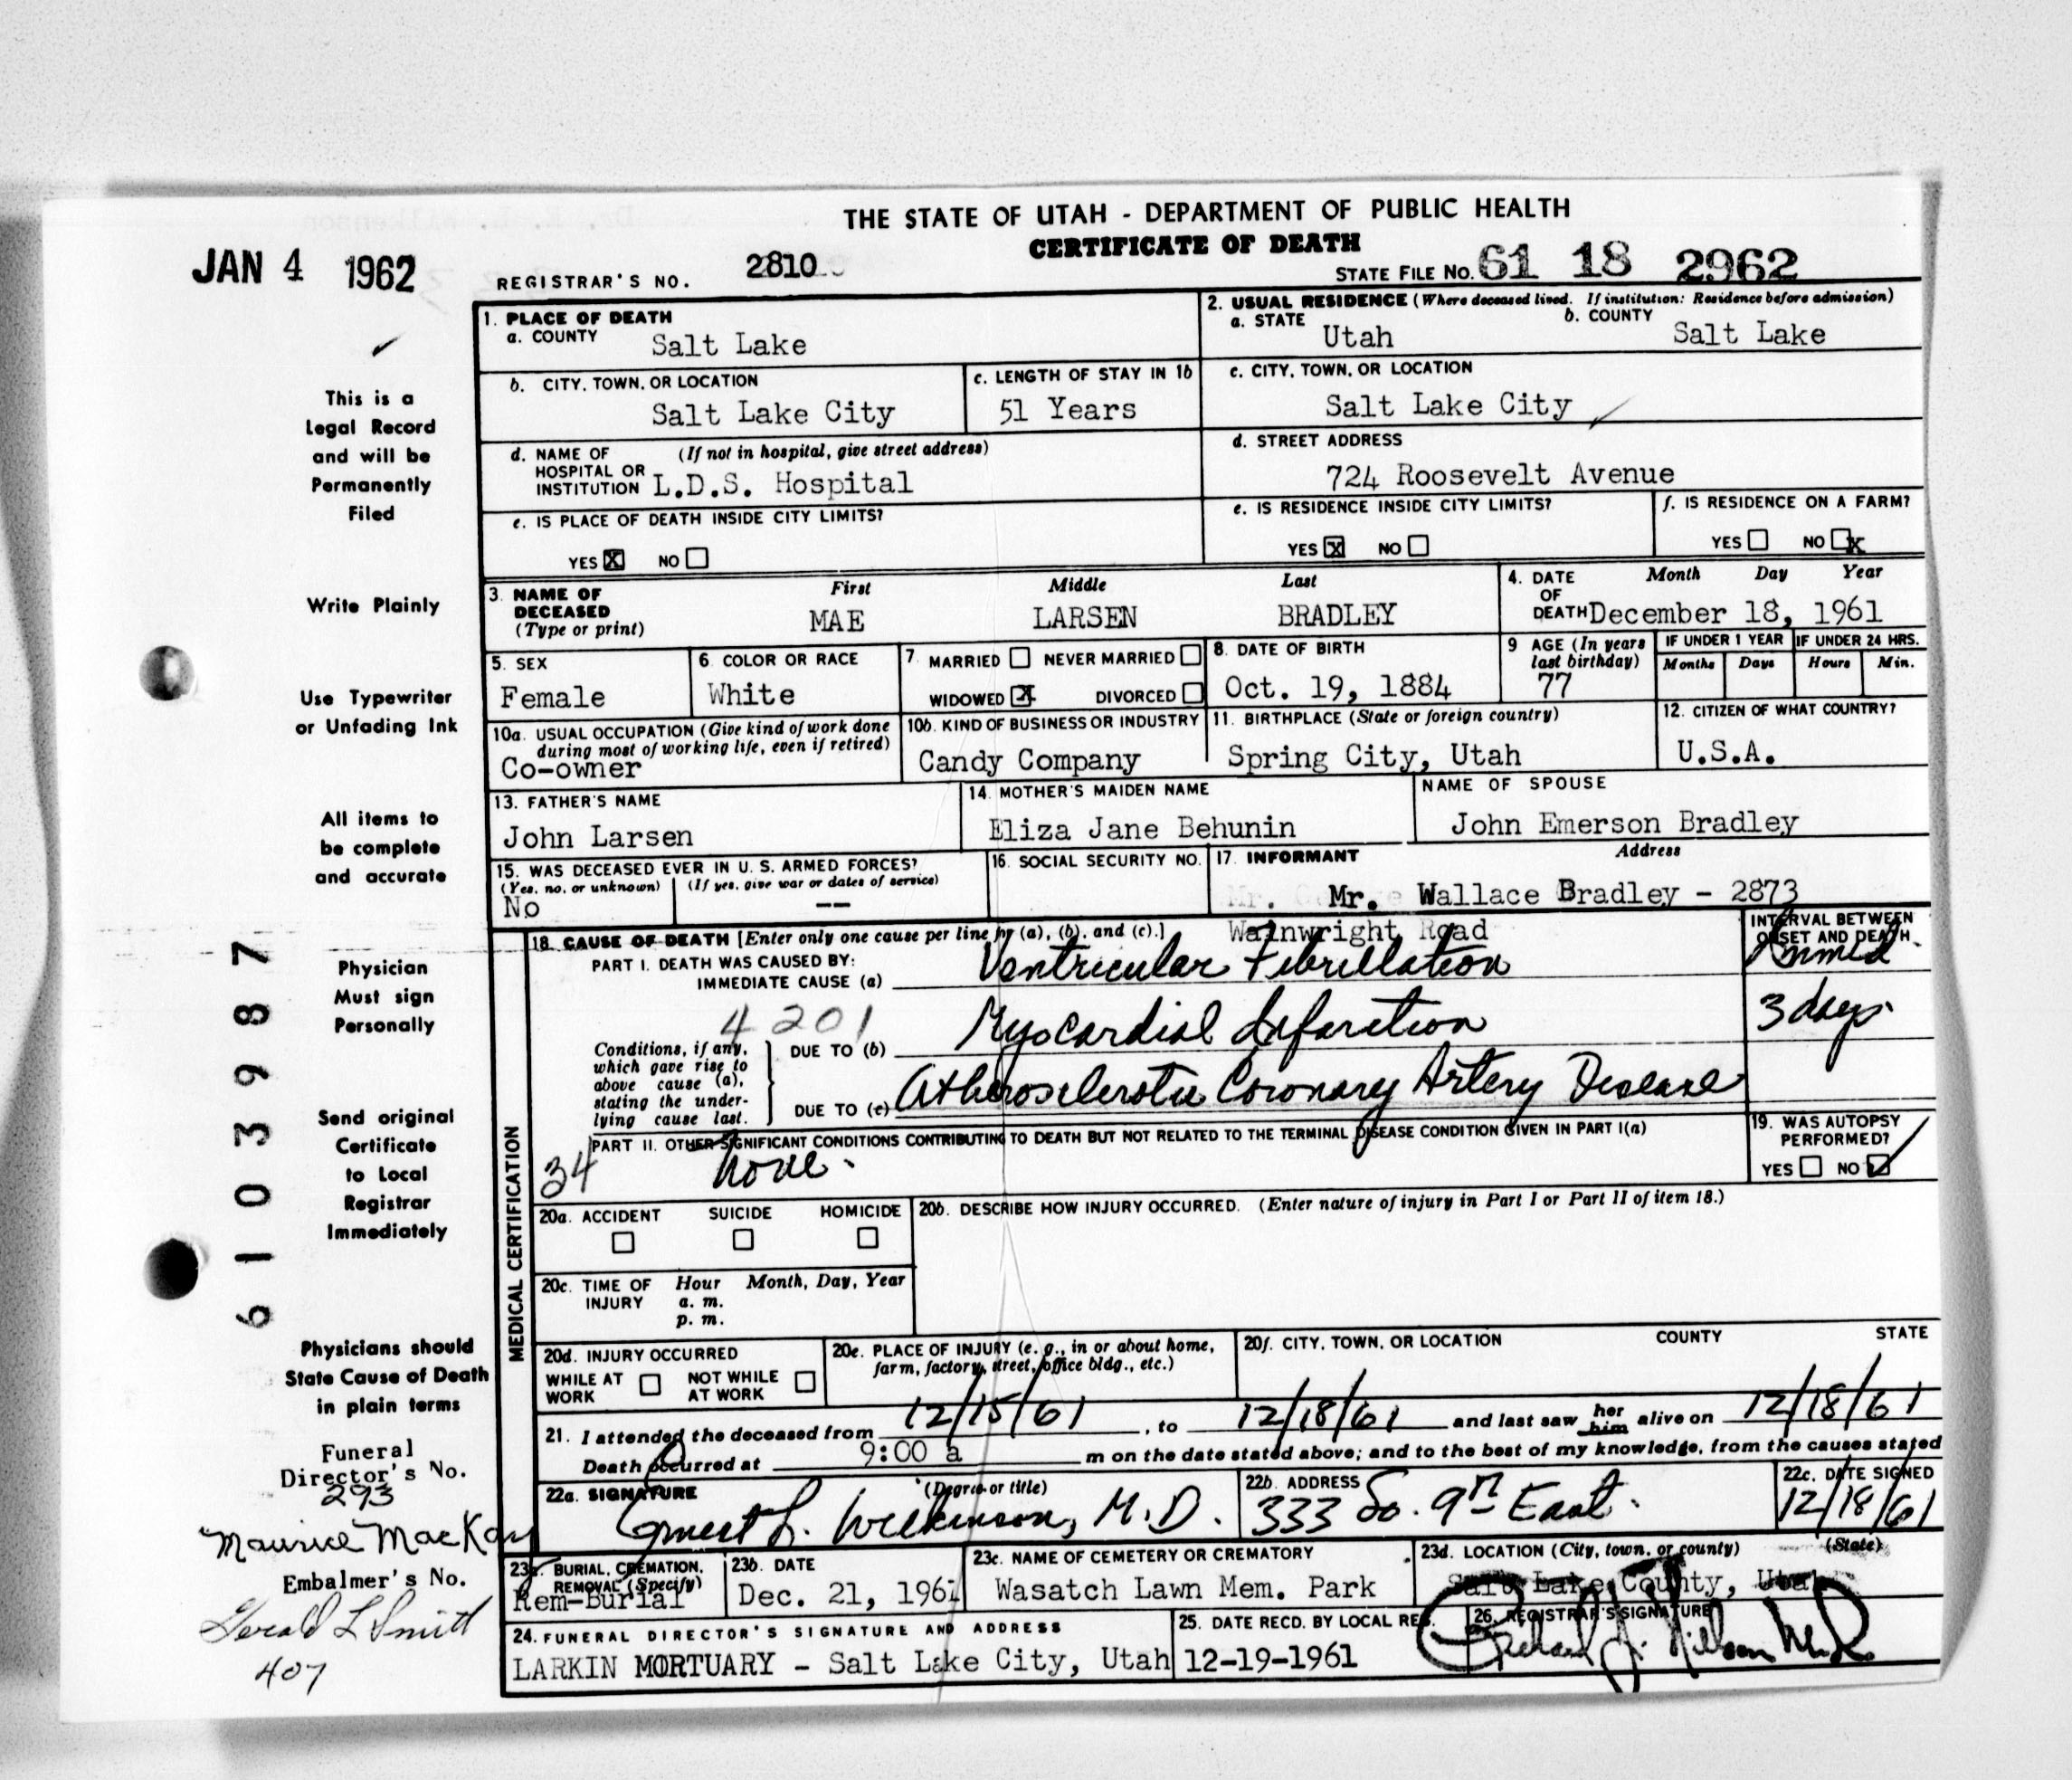 THE STATE OF UTAH - DEPARTMENT OF PUBLIC HEALTH
CERTIFICATE OF DEATH
JAN 4 1962
REGISTRAR'S NO. 2810
STATE FILE NO. 61 18 2962
1. PLACE OF DEATH
a. COUNTY Salt Lake
2. USUAL RESIDENCE (Where deceased lived. If institution: Residence before admission)
a. STATE Utah b. COUNTY Salt Lake
b. CITY, TOWN, OR LOCATION Salt Lake City
c. LENGTH OF STAY IN 1b 51 Years
c. CITY, TOWN, OR LOCATION Salt Lake City
d. NAME OF HOSPITAL OR INSTITUTION (If not in hospital, give street address) L.D.S. Hospital
d. STREET ADDRESS 724 Roosevelt Avenue
e. IS PLACE OF DEATH INSIDE CITY LIMITS?
YES X NO
e. IS RESIDENCE INSIDE CITY LIMITS?
YES X NO
f. IS RESIDENCE ON A FARM?
YES NO X
3. NAME OF DECEASED (Type or print)
First Middle Last
MAE LARSEN BRADLEY
4. DATE OF DEATH Month Day Year
December 18, 1961
5. SEX Female
6. COLOR OR RACE White
7. MARRIED NEVER MARRIED
WIDOWED X DIVORCED
8. DATE OF BIRTH Oct. 19, 1884
9 AGE (In years last birthday) 77
IF UNDER 1 YEAR Months Days
IF UNDER 24 HRS. Hours Min.
10a. USUAL OCCUPATION (Give kind of work done during most of working life, even if retired)
Co-owner
10b. KIND OF BUSINESS OR INDUSTRY
Candy Company
11. BIRTHPLACE (State or foreign country)
Spring City, Utah
12. CITIZEN OF WHAT COUNTRY?
U.S.A.
13. FATHER'S NAME
John Larsen
14. MOTHER'S MAIDEN NAME
Eliza Jane Behunin
NAME OF SPOUSE
John Emerson Bradley
15. WAS DECEASED EVER IN U. S. ARMED FORCES?
(Yes, no, or unknown) (If yes, give war or dates of service)
No --
16. SOCIAL SECURITY NO.
17. INFORMANT Address
Mr. Wallace Bradley - 2873
Wainwright Road
MEDICAL CERTIFICATION
18. CAUSE OF DEATH [Enter only one cause per line for (a), (b), and (c).]
INTERVAL BETWEEN ONSET AND DEATH
PART I. DEATH WAS CAUSED BY:
IMMEDIATE CAUSE (a) Ventricular Fibrillation
4201
Conditions, if any, which gave rise to above cause (a), stating the underlying cause last.
DUE TO (b) Myocardial Infarction 3 days
DUE TO (c) Atherosclerotic Coronary Artery Disease
PART II. OTHER SIGNIFICANT CONDITIONS CONTRIBUTING TO DEATH BUT NOT RELATED TO THE TERMINAL DISEASE CONDITION GIVEN IN PART I(a)
34 none.
19. WAS AUTOPSY PERFORMED?
YES NO ✓
20a. ACCIDENT SUICIDE HOMICIDE
20b. DESCRIBE HOW INJURY OCCURRED. (Enter nature of injury in Part I or Part II of item 18.)
20c. TIME OF INJURY Hour Month, Day, Year
a. m.
p. m.
20d. INJURY OCCURRED
WHILE AT WORK NOT WHILE AT WORK
20e. PLACE OF INJURY (e. g., in or about home, farm, factory, street, office bldg., etc.)
20f. CITY, TOWN, OR LOCATION COUNTY STATE
21. I attended the deceased from 12/15/61, to 12/18/61 and last saw her him alive on 12/18/61
Death occurred at 9:00 a m on the date stated above; and to the best of my knowledge, from the causes stated
22a. SIGNATURE (Degree or title)
Ernest L. Wilkinson, M.D.
22b. ADDRESS
333 So. 9th East.
22c. DATE SIGNED
12/18/61
23a. BURIAL, CREMATION, REMOVAL (Specify)
Rem-Burial
23b. DATE
Dec. 21, 1961
23c. NAME OF CEMETERY OR CREMATORY
Wasatch Lawn Mem. Park
23d. LOCATION (City, town, or county) (State)
Salt Lake County, Utah
24. FUNERAL DIRECTOR'S SIGNATURE AND ADDRESS
LARKIN MORTUARY - Salt Lake City, Utah
25. DATE RECD. BY LOCAL REG.
12-19-1961
26. REGISTRAR'S SIGNATURE
This is a
Legal Record
and will be
Permanently
Filed
Write Plainly
Use Typewriter
or Unfading Ink
All items to
be complete
and accurate
Physician
Must sign
Personally
Send original
Certificate
to Local
Registrar
Immediately
Physicians should
State Cause of Death
in plain terms
Funeral
Director's No.
293
Maurice MacKay
Embalmer's No.
Gerald L Smith
407
6103987